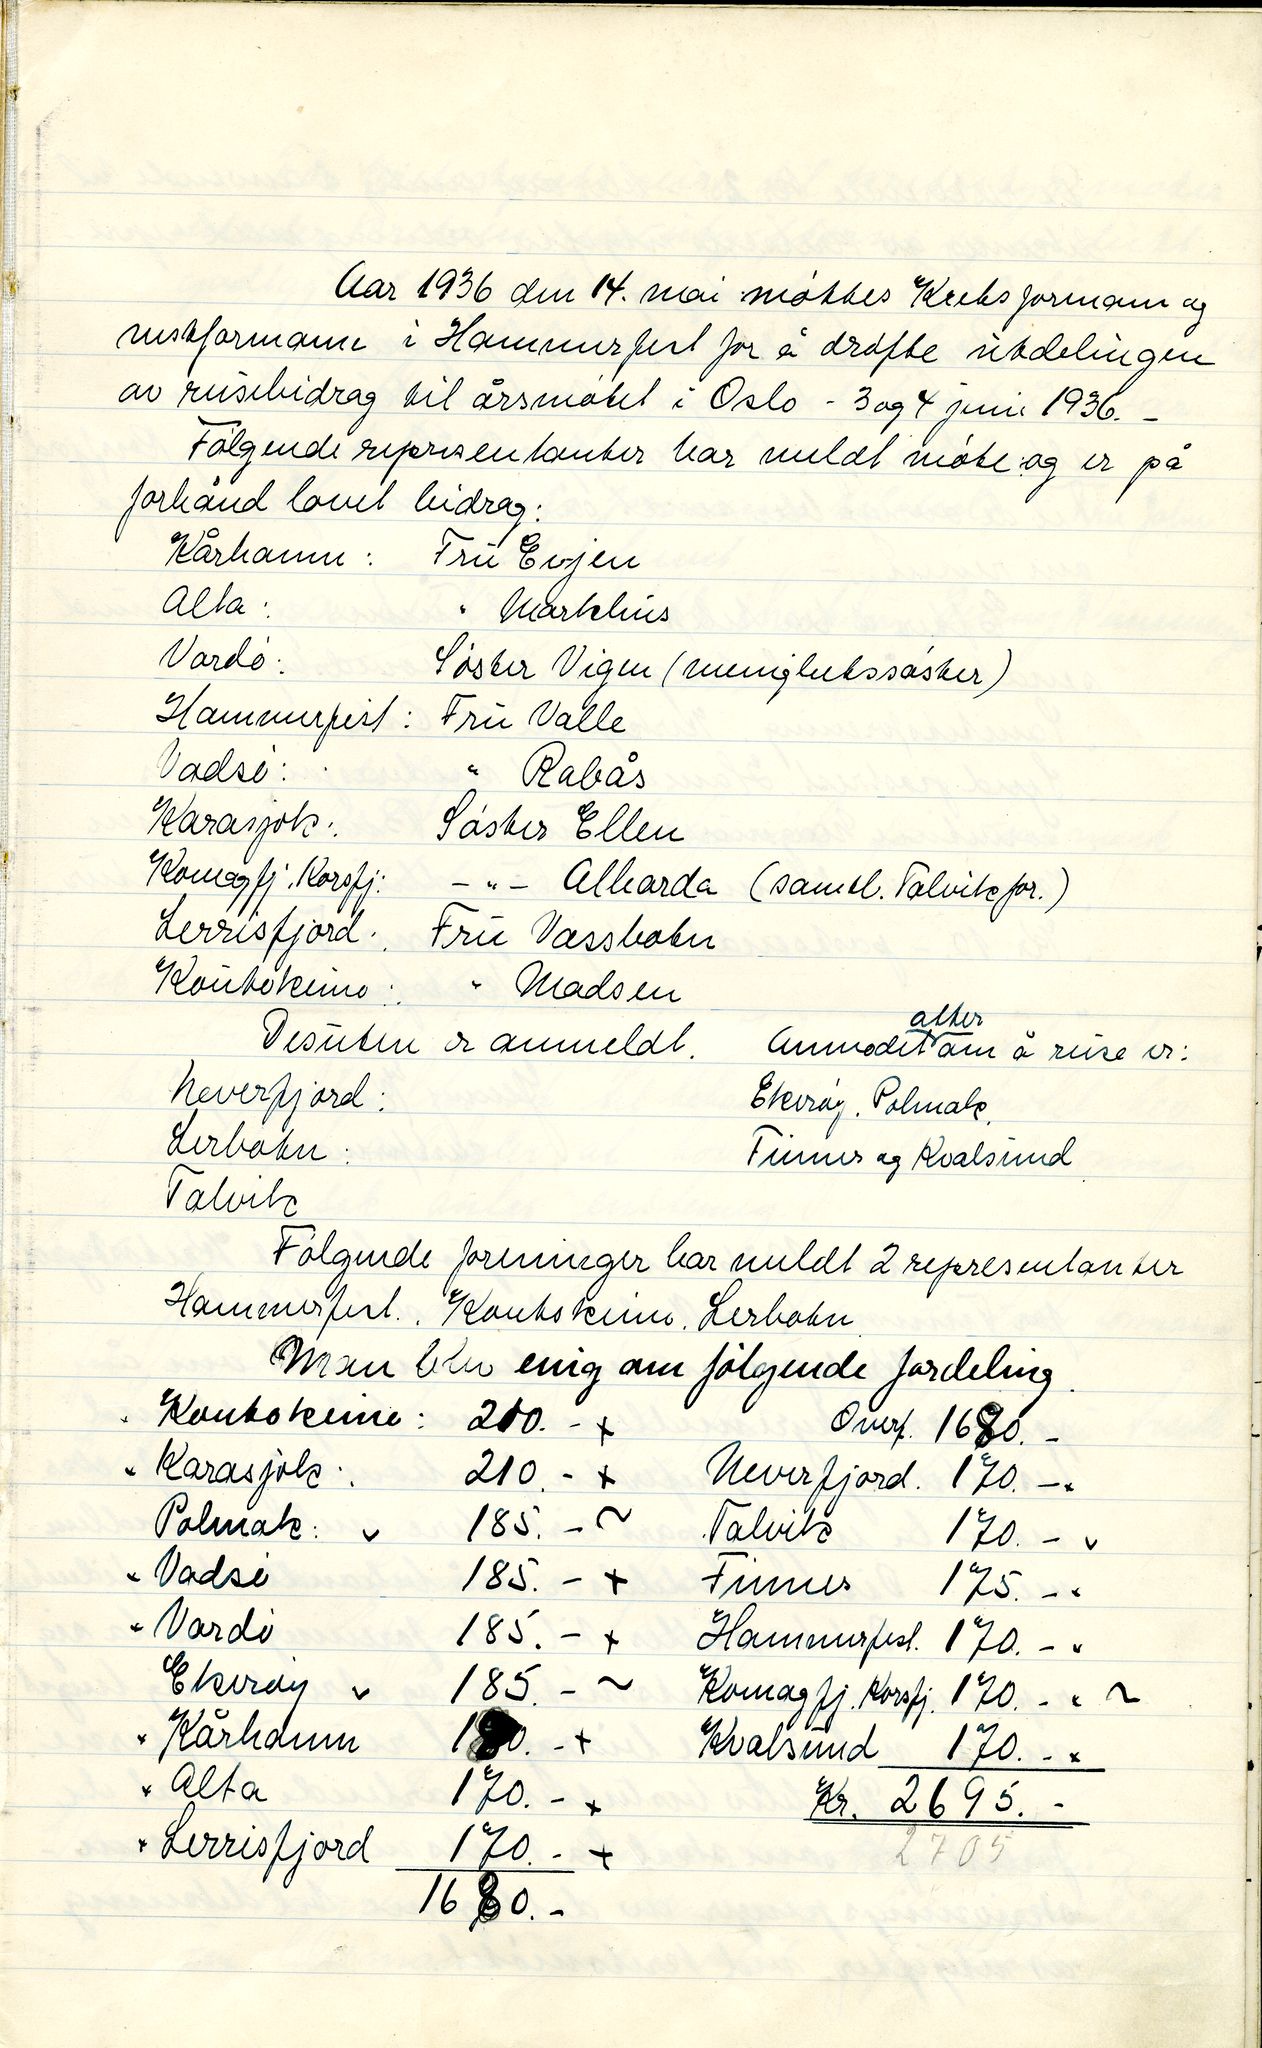 Aar 1936 den 14. mai møttes Kretsformann og
nestformann i Hammerfest for å drøfte utdelingen
av reisebidrag til årsmøtet i Oslo - 3 og 4 juni 1936. -
Følgende representanter har meldt møte og er på
forhånd lovet bidrag:
Kårhamn: Fru Evjen
Alta: " Markhus
Vardø: Søster Vigen (menighetssøster)
Hammerfest: Fru Valle
Vadsø: " Rabås
Karasjok: Søster Ellen
Komagfj. Korsfj: -"- Alharda (samtl. Talvikfor.)
Lerrisfjord: Fru Vassbotn
Koutokeino: " Madsen
Desuten er anmeldt. Anmodet atter om å reise er:
Neverfjord: Ekerøy. Polmak.
Lerbotn: Finnes og Kvalsund
Talvik
Følgende foreninger har meldt 2 representanter
Hammerfest. Koutokeino. Lerbotn
Man blev enig om følgende fordeling.
Koutokeino: 210. - + Overf. 1680. -
Karasjok: 210. - + Neverfjord. 170. -
Polmak: v 185. - ~ Talvik 170. - v
Vadsø 185. - + Finnes 175. -
Vardø 185. - + Hammerfest. 170. -
Ekerøy v 185. - ~ Komagfj. Korsfj. 170. - ~
Kårhamn 180. - + Kvalsund 170. -
Alta 170. - + Kr. 2695. -
Lerrisfjord 170. - + 2705
1680. -